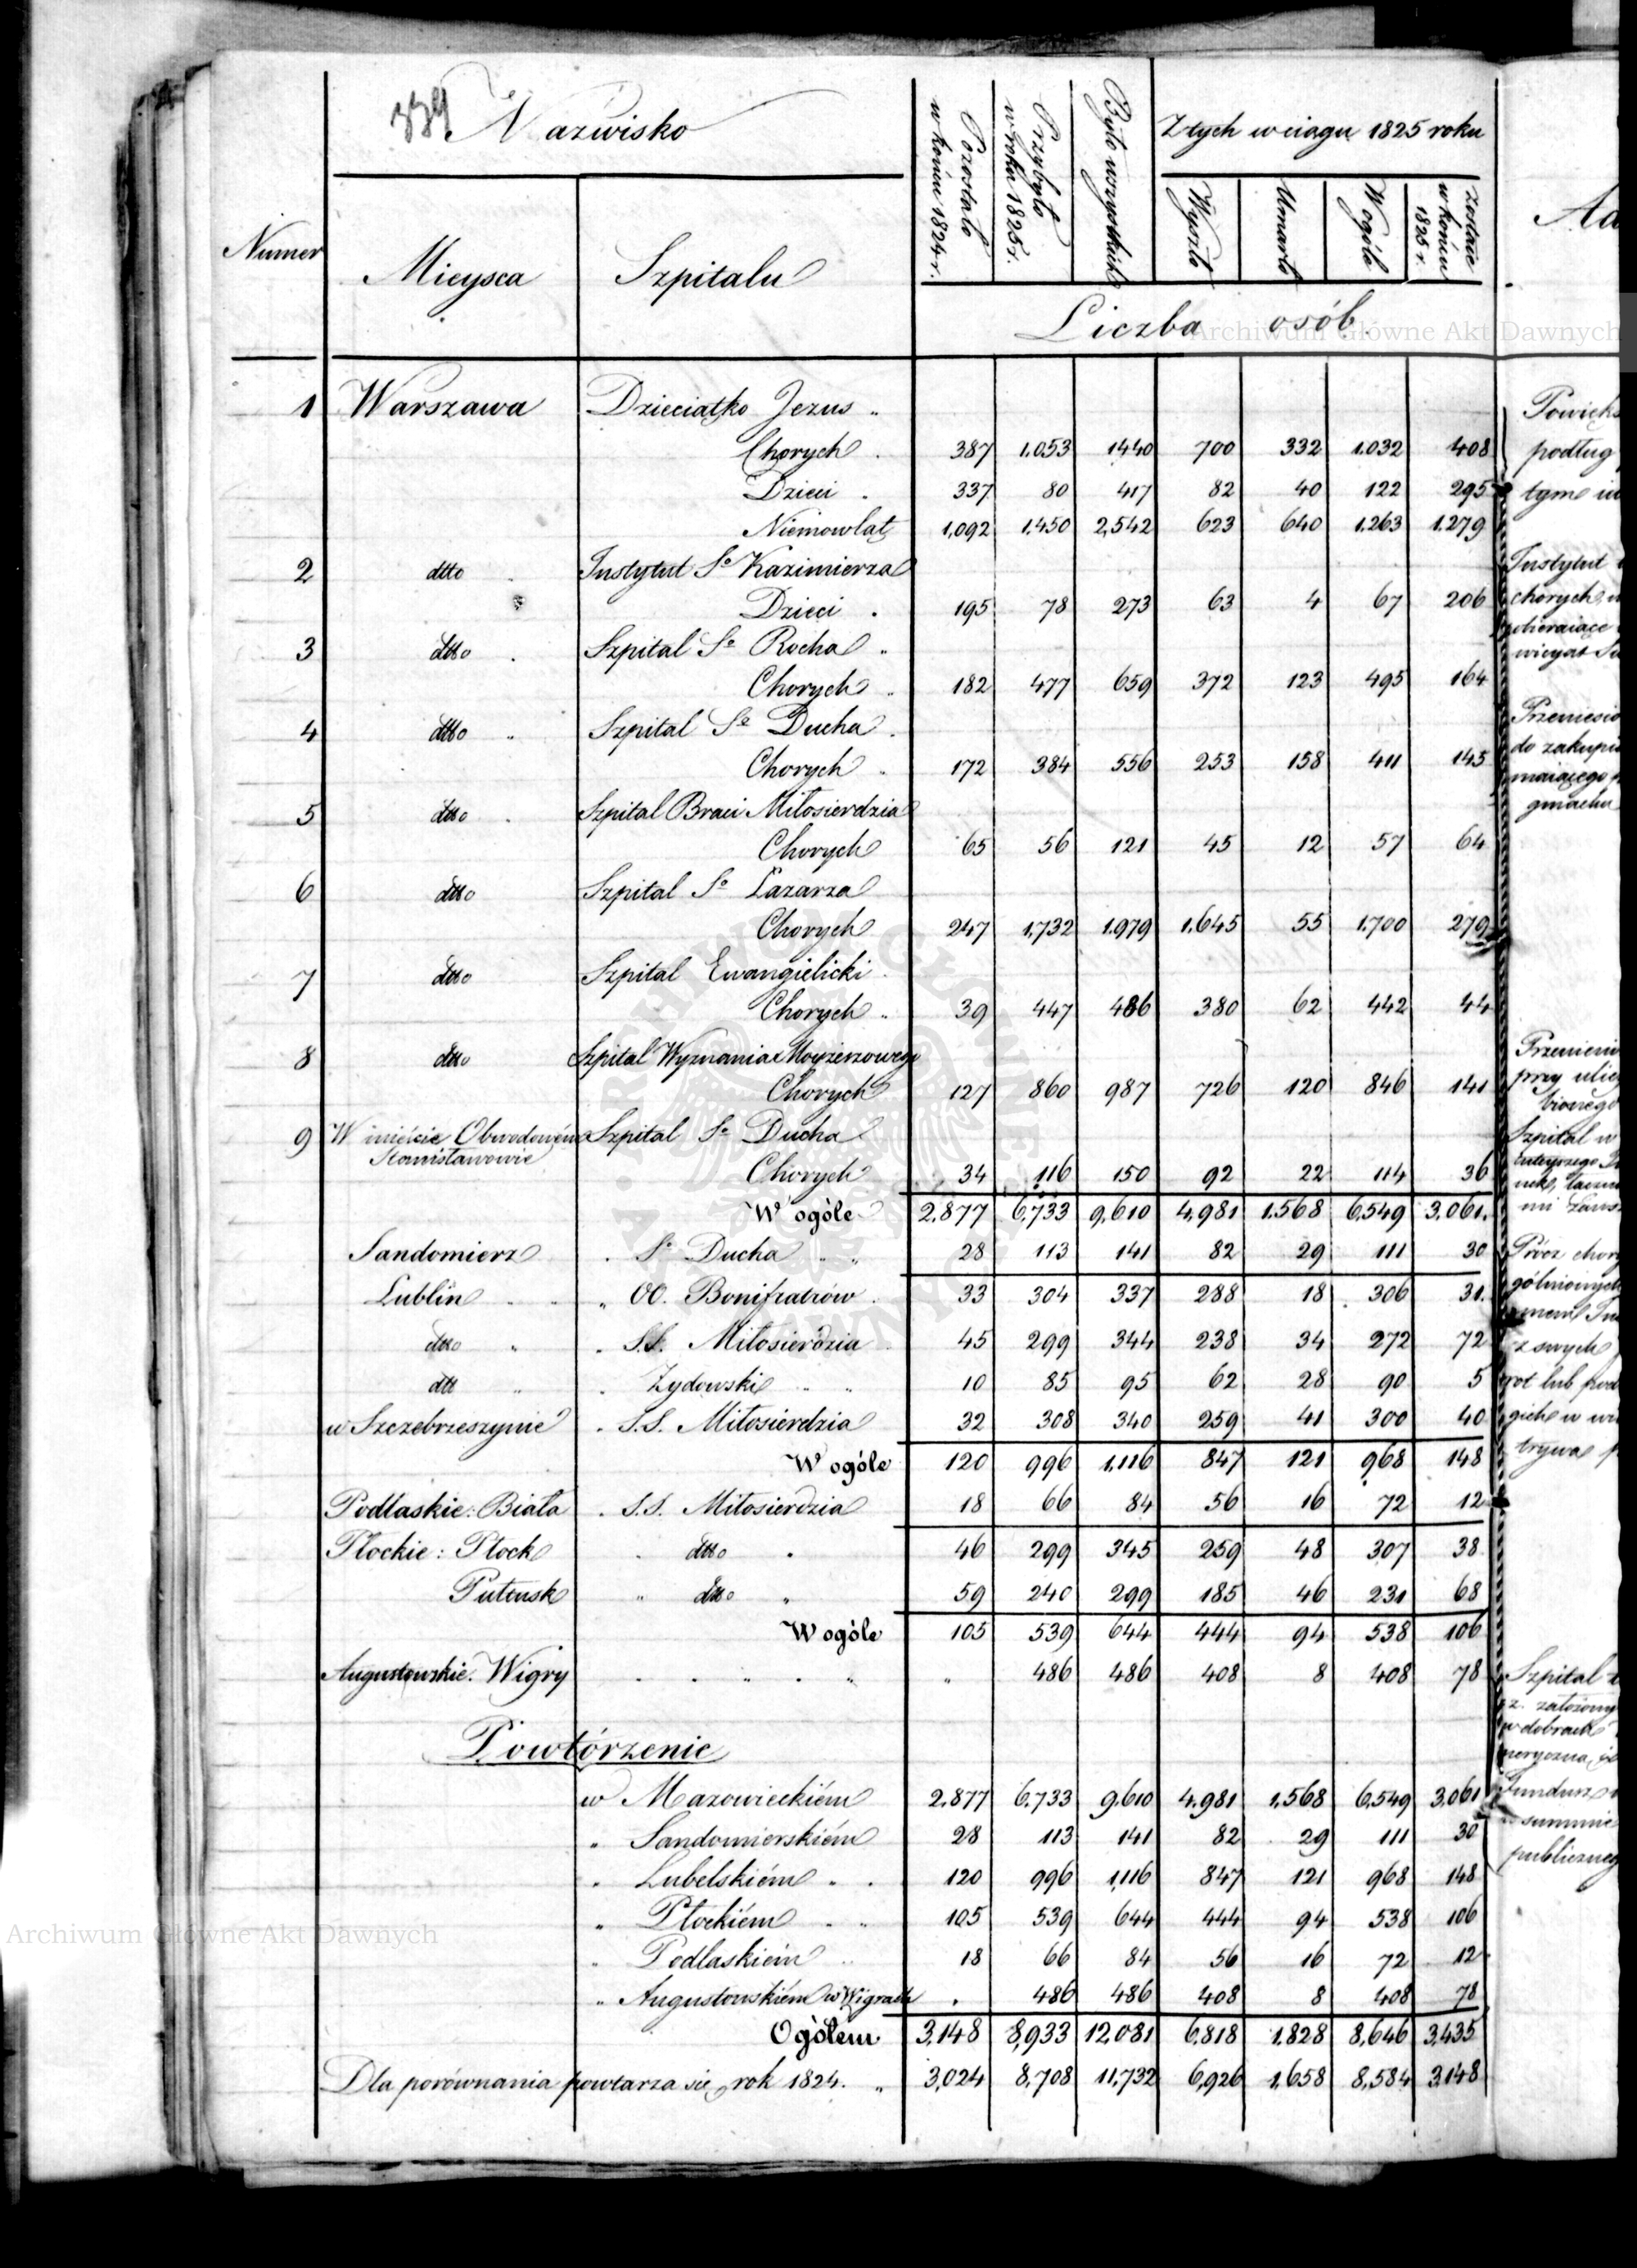 339
Nazwisko
Numer
Mieysca
Szpitalu
Pozostało w końcu 1824 r.
Przybyło w roku 1825 r.
Było wszystkich
Z tych w ciągu 1825 roku
Wyszło
Umarło
W ogóle
Zostaie w końcu 1825 r.
Liczba osób.
Archiwum Główne Akt Dawnych
1 Warszawa Dzieciątko Jezus „
Chorych . 387 1.053 1440 700 332 1.032 408
Dzieci . 337 80 417 82 40 122 295
Niemowląt 1,092 1.450 2,542 623 640 1.263 1.279
2 dtto . Instytut Sº Kazimierza
Dzieci . 195 78 273 63 4 67 206
3 dtto . Szpital Sº Rocha „
Chorych „ 182 477 659 372 123 495 164
4 dtto „ Szpital Sº Ducha .
Chorych „ 172 384 556 253 158 411 145
5 dtto . Szpital Braci Miłosierdzia
Chorych 65 56 121 45 12 57 64
6 dtto Szpital Sº Łazarza
Chorych 247 1,732 1.979 1.645 55 1.700 279
7 dtto Szpital Ewangielicki .
Chorych „ 39 447 486 380 62 442 44
8 dtto Szpital Wyznania Moyżeszowego
Chorych 127 860 987 726 120 846 141
9 W mieście Obwodowém Stanisławowie Szpital Sº Ducha
Chorych 34 116 150 92 22 114 36
W ogóle 2.877 6,733 9,610 4,981 1.568 6,549 3,061.
Sandomierz . Sº Ducha . „ 28 113 141 82 29 111 30
Lublin . . „ OO. Bonifratrów . 33 304 337 288 18 306 31.
dtto „ . S.S. Miłosierdzia 45 299 344 238 34 272 72
dtt „ . Żydowski „ „ 10 85 95 62 28 90 5
w Szczebrzeszynie . S.S. Miłosierdzia 32 308 340 259 41 300 40
W ogóle 120 996 1,116 847 121 968 148
Podlaskie: Biała . S.S. Miłosierdzia 18 66 84 56 16 72 12
Płockie: Płock . dtto . 46 299 345 259 48 307 38
Pułtusk „ dtto „ 59 240 299 185 46 231 68
W ogóle 105 539 644 444 94 538 106
Augustowskie. Wigry . . „ . „ „ 486 486 408 8 408 78
Powtórzenie
w Mazowieckiém 2.877 6.733 9.610 4.981 1,568 6,549 3,061
„ Sandomierskiém 28 113 141 82 29 111 30
„ Lubelskiém . . 120 996 1,116 847 121 968 148
„ Płockiém . „ 105 539 644 444 94 538 106
„ Podlaskiém „ 18 66 84 56 16 72 12
„ Augustowskiém w Wigrach . 486 486 408 8 408 78
Ogółem 3,148 8,933 12,081 6,818 1.828 8,646 3,435
Dla porównania powtarza się rok 1824. „ 3,024 8,708 11,732 6,926 1,658 8,584 3,148
Archiwum Główne Akt Dawnych
Powięks
podług
tym
Instytut
chorych
Przeniesio
do zakupio
maiącego
gmachu
przy ulicy
Szpital w
Prócz chor
z swych
rot lub pod
gich w
trzywa p
Szpital
z. założony
w dobrach
Fundusz
summie
publiczneg